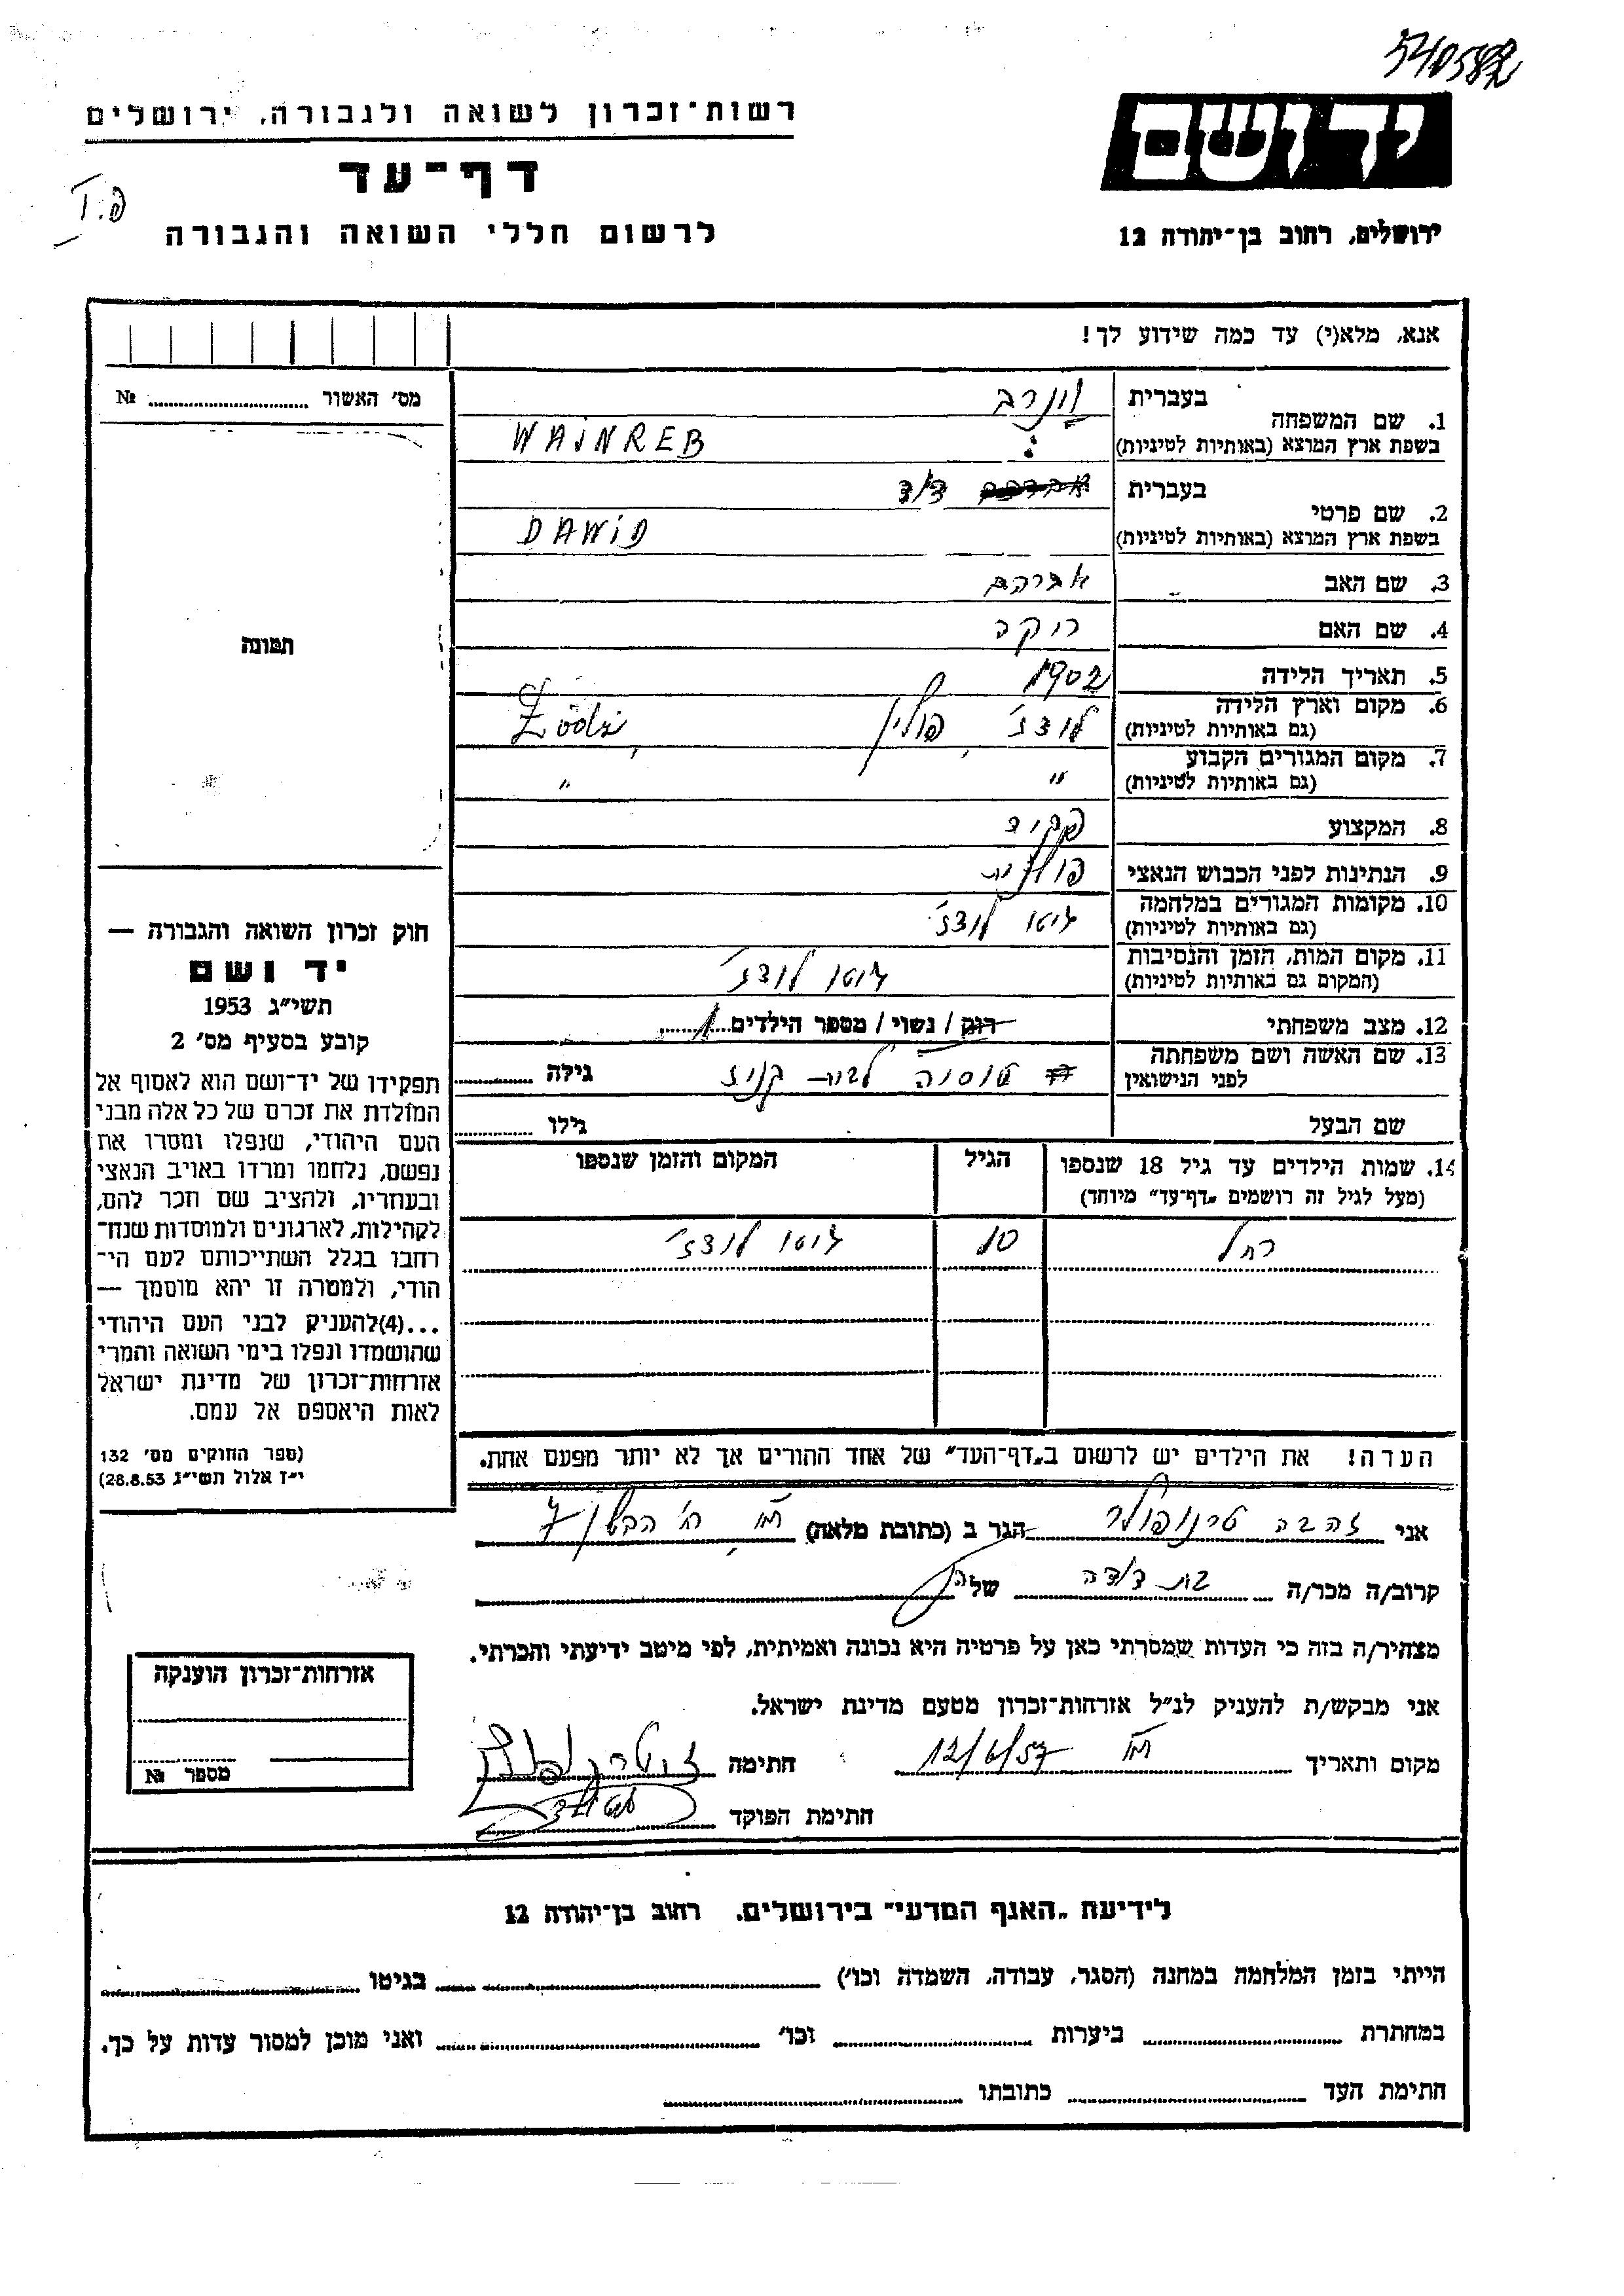 540582
רשות-זכרון לשואה ולגבורה, ירושלים
יד ושם
דף-עד
פ.ד
לרשום חללי השואה והגבורה
ירושלים, רחוב בן-יהודה 12
אנא, מלא(י) עד כמה שידוע לך!
מס' האשור № 
1. שם המשפחה
בעברית
וינרב
בשפת ארץ המוצא (באותיות לטיניות)
WAJNREB
2. שם פרטי
בעברית
דוד
בשפת ארץ המוצא (באותיות לטיניות)
DAWID
3. שם האב
אברהם
4. שם האם
רוקה
תמונה
5. תאריך הלידה
1902
6. מקום וארץ הלידה
(גם באותיות לטיניות)
לודז', פולין, Łódź
7. מקום המגורים הקבוע
(גם באותיות לטיניות)
" "
8. המקצוע
פקיד
9. הנתינות לפני הכבוש הנאצי
פולנית
10. מקומות המגורים במלחמה
(גם באותיות לטיניות)
גיטו לודז'
11. מקום המות, הזמן והנסיבות
(המקום גם באותיות לטיניות)
גיטו לודז'
12. מצב משפחתי
רוק / נשוי / מספר הילדים 1
13. שם האשה ושם משפחתה
לפני הנישואין
טוסיה לבית
גילה
שם הבעל
גילו
14. שמות הילדים עד גיל 18 שנספו
(מעל לגיל זה רושמים "דף-עד" מיוחד)
הגיל
המקום והזמן שנספו
רחל 10 גיטו לודז'
הערה! את הילדים יש לרשום ב"דף-העד" של אחד ההורים אך לא יותר מפעם אחת.
חוק זכרון השואה והגבורה —
יד ושם
תשי"ג 1953
קובע בסעיף מס' 2
תפקידו של יד-ושם הוא לאסוף אל
המולדת את זכרם של כל אלה מבני
העם היהודי, שנפלו ומסרו את
נפשם, נלחמו ומרדו באויב הנאצי
ובעוזריו, ולהציב שם וזכר להם,
לקהילות, לארגונים ולמוסדות שנח-
רבו בגלל השתייכותם לעם הי-
הודי, ולמטרה זו יהא מוסמך —
...(4)להעניק לבני העם היהודי
שהושמדו ונפלו בימי השואה והמרי
אזרחות-זכרון של מדינת ישראל
לאות היאספם אל עמם.
(ספר החוקים מס' 132
י"ז אלול תשי"ג 28.8.53)
אני זהבה טרנופולר הגר ב (כתובת מלאה)
קרוב/ה מכר/ה בת דודה של
מצהיר/ה בזה כי העדות שמסרתי כאן על פרטיה היא נכונה ואמיתית, לפי מיטב ידיעתי והכרתי.
אני מבקש/ת להעניק לנ"ל אזרחות-זכרון מטעם מדינת ישראל.
מקום ותאריך 12/6/57 חתימה
חתימת הפוקד
אזרחות-זכרון הוענקה
מספר №
לידיעת "האגף המדעי" בירושלים. רחוב בן-יהודה 12
הייתי בזמן המלחמה במחנה (הסגר, עבודה, השמדה וכו') בגיטו
במחתרת ביערות וכו' ואני מוכן למסור עדות על כך.
חתימת העד כתובתו